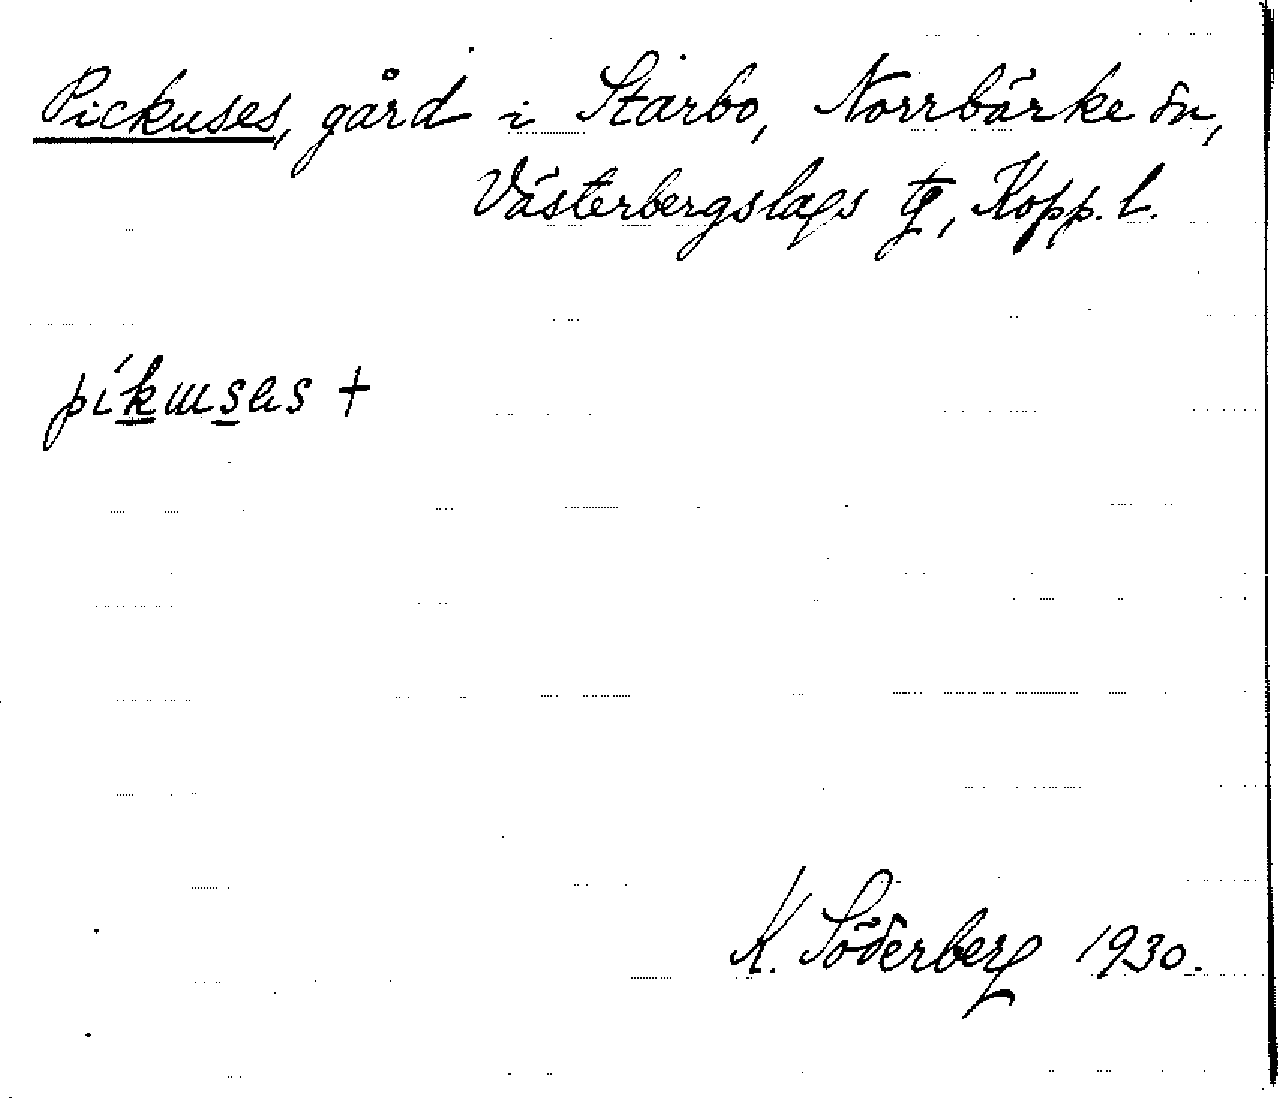 Pickuses, gård i Starbo, Norrbärke sn,
Västerbergslags tg, Kopp. l.
píkɯsɐs +
K. Söderberg 1930.